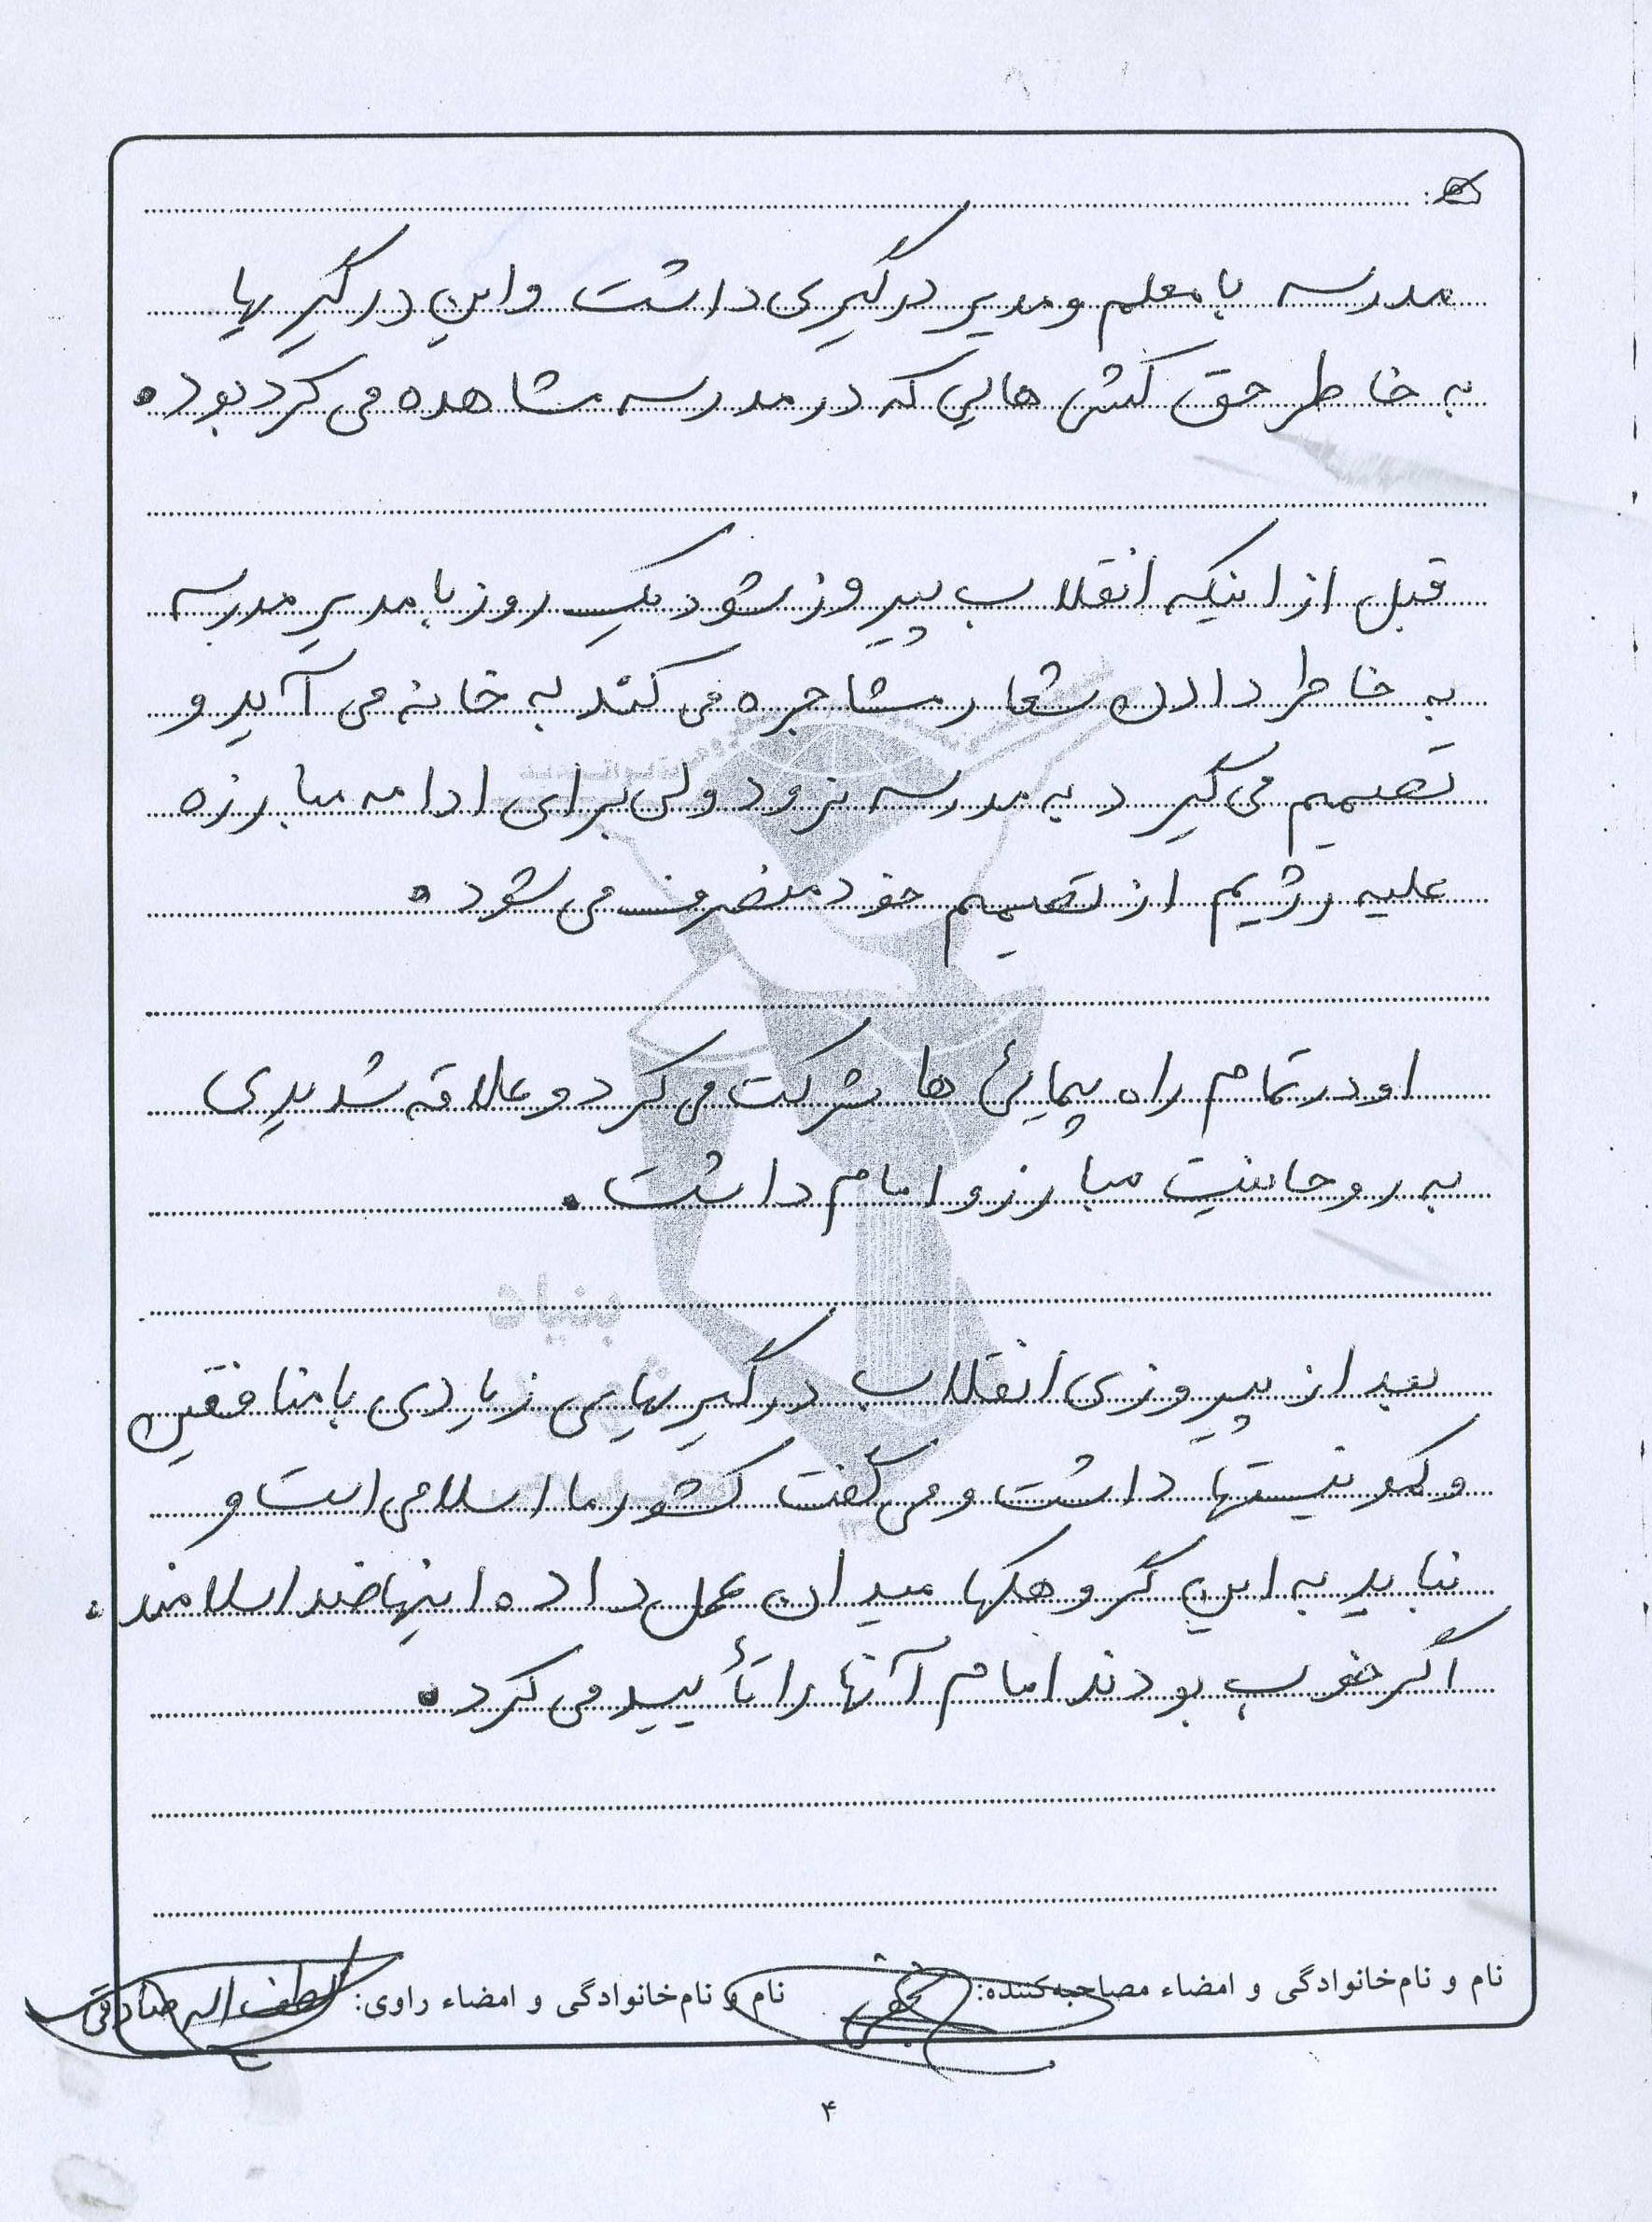 مدرسه با معلم و مدیر درگیری داشت و این درگیریها
به خاطر حق کشی هایی که در مدرسه مشاهده می کرد بود.
قبل از اینکه انقلاب پیروز شود یک روز با مدیر مدرسه
به خاطر دادن شعار مشاجره می کند به خانه می آید و
تصمیم می گیرد به مدرسه نرود ولی برای ادامه مبارزه
علیه رژیم از تصمیم خود منصرف می شود.
او در تمام راه پیمائی ها شرکت می کرد و علاقه شدیدی
به روحانیت مبارز و امام داشت.
بعد از پیروزی انقلاب درگیریهایی زیادی با منافقین
و کمونیستها داشت و می گفت کشور ما اسلامی است و
نباید به این گروهکها میدان عمل داد. اینها ضد اسلامند.
اگر خوب بودند امام آنها را تأیید می کرد.
نام و نام‌خانوادگی و امضاء مصاحبه‌کننده: نام و نام‌خانوادگی و امضاء راوی: لطف اله صادقی
۴
بنیاد